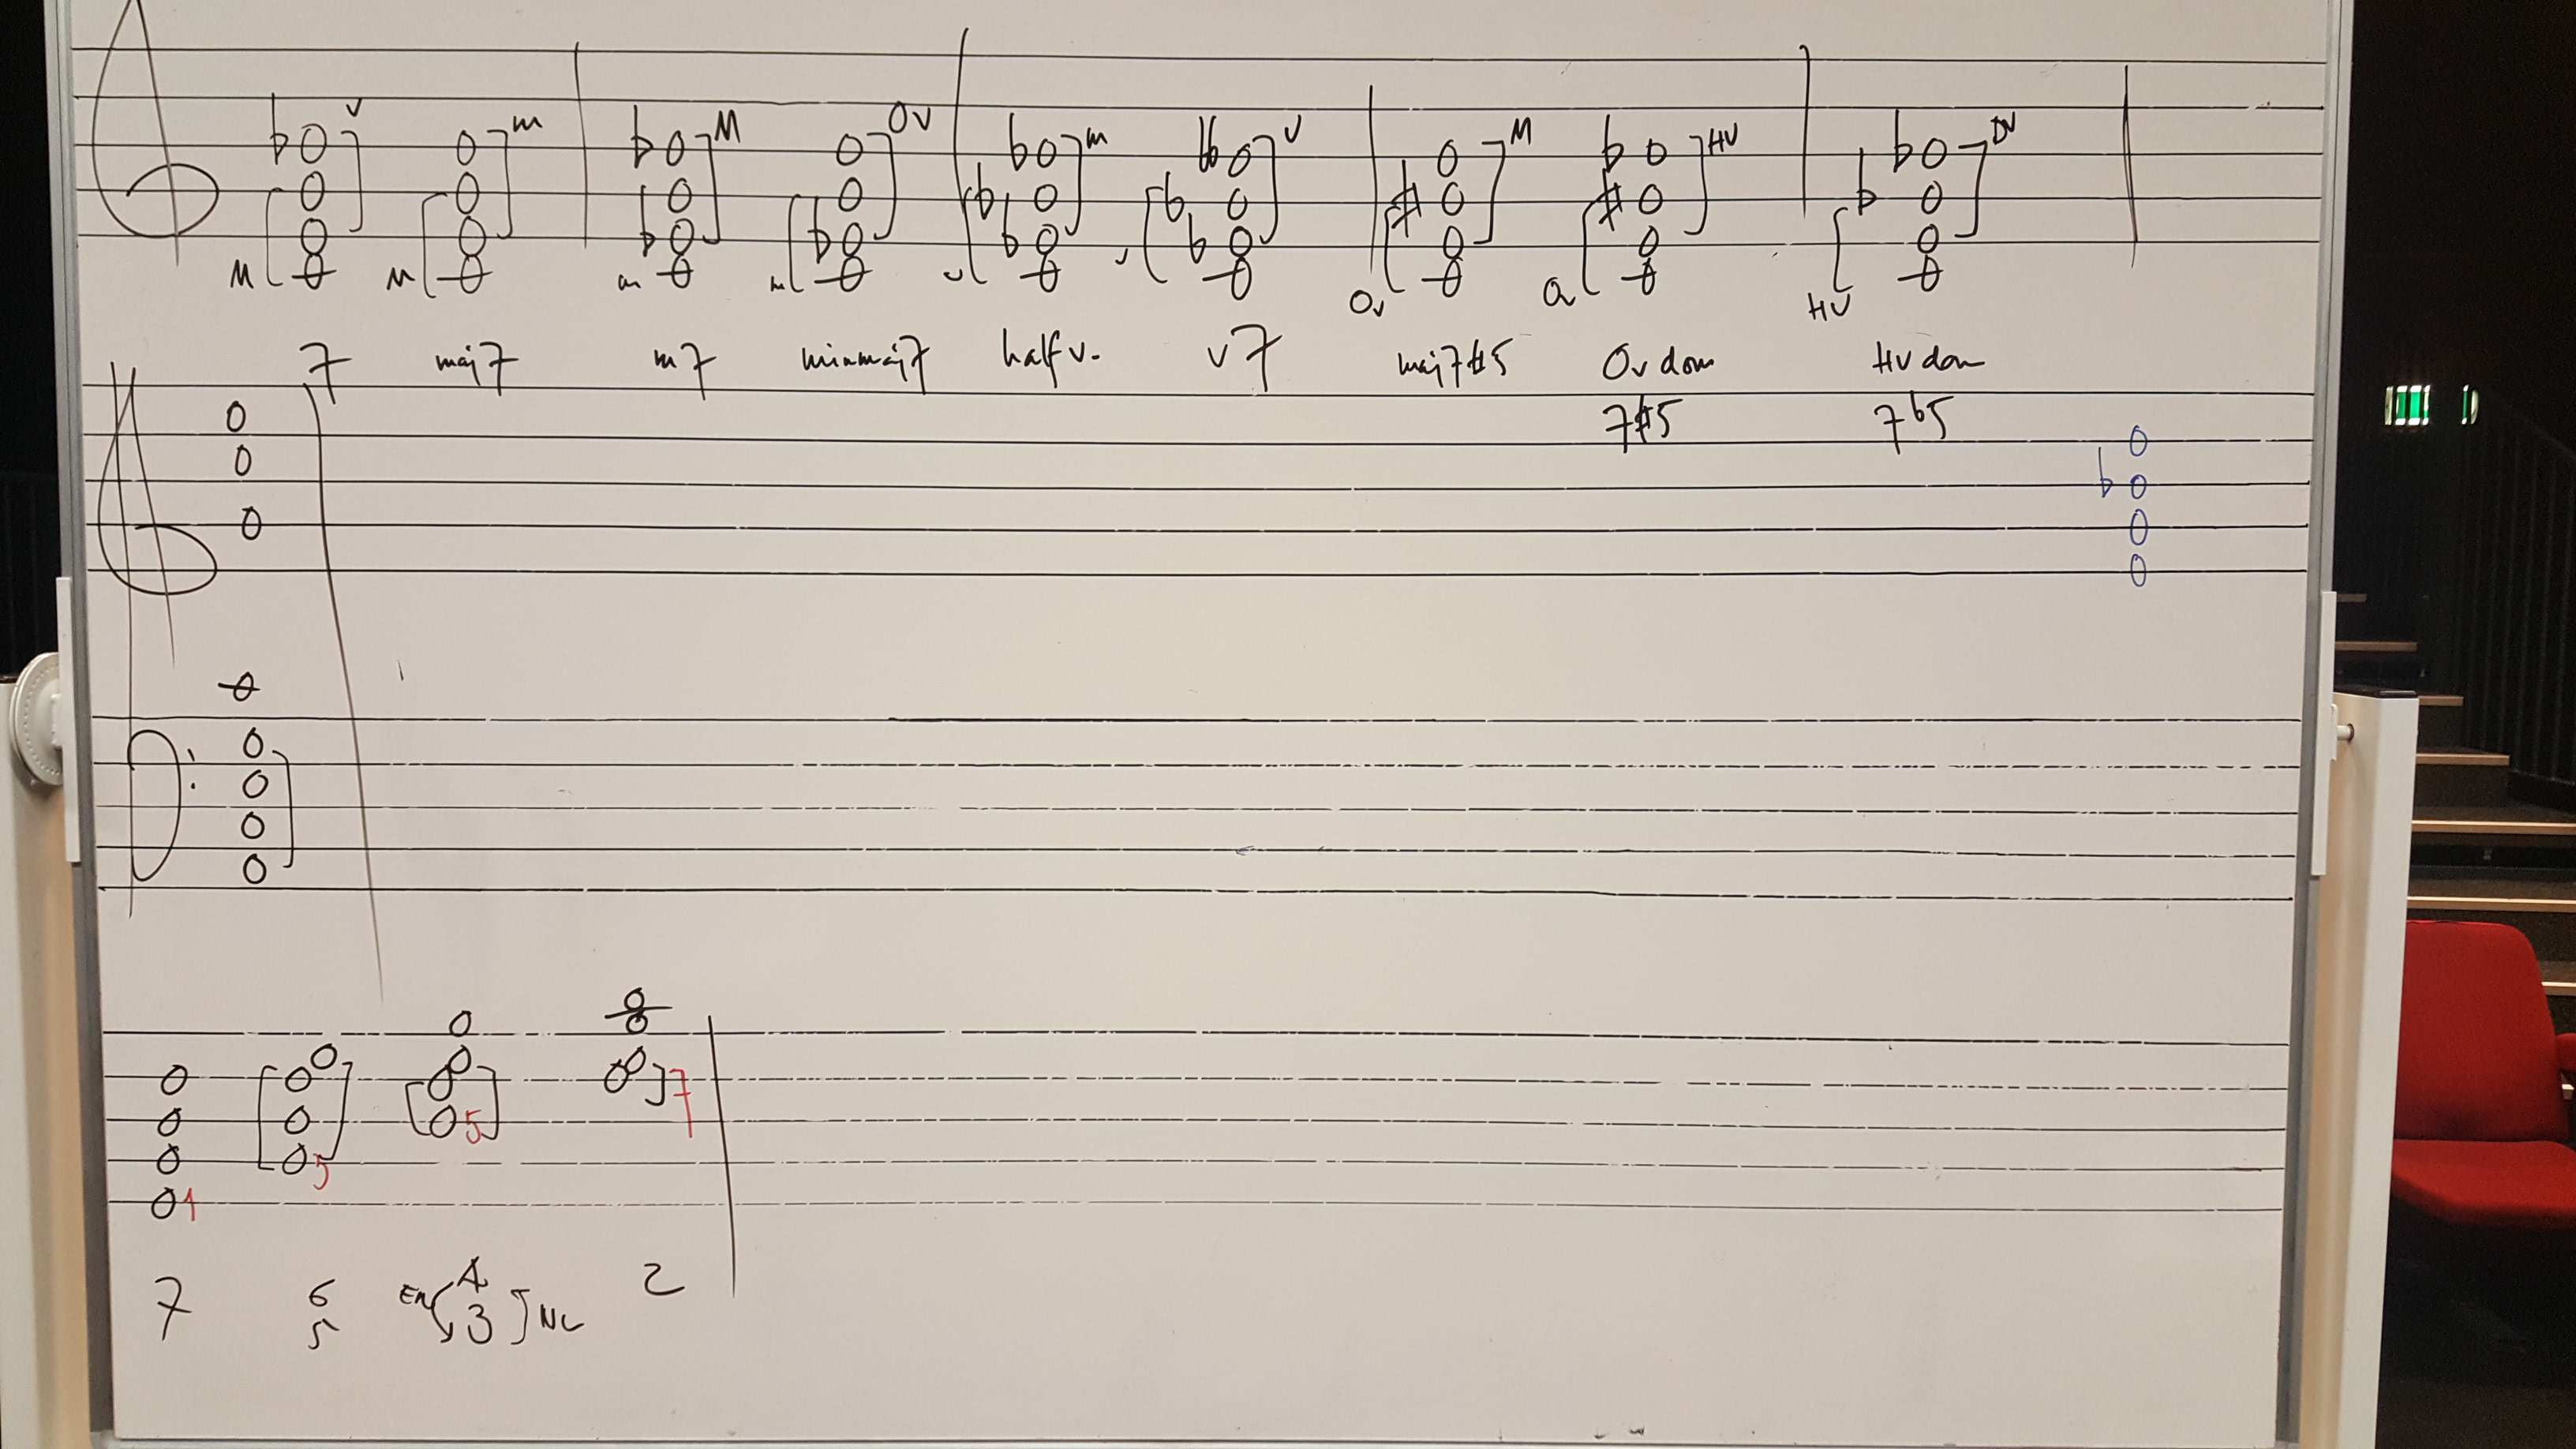 V m M OV m V M HV DV
M M m m v v Ov Ov HV
7 maj7 m7 minmaj7 half v. v7 maj7#5 Ov dom HV dom
7#5 7b5
1 5 5 7
7 6 5 EN 4 3 NL 2